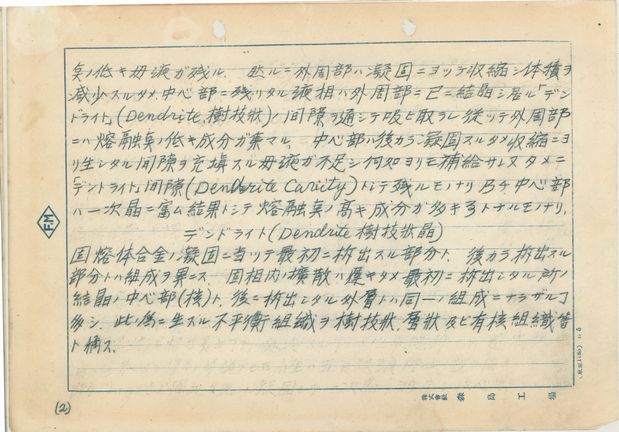 点ノ低キ母液ガ残ル. 然ルニ外周部ハ凝固ニヨッテ収縮シ体積ヲ
減少スルタメ、中心部ニ残リタル液相ハ外周部ニ已ニ結晶シ居ル「デン
ドライト」(Dendrite, 樹枝状)ノ間隙ヲ通シテ吸ヒ取ラレ 従ッテ外周部
ニハ 熔融点ノ低キ成分ガ集マル. 中心部ハ後カラ凝固スルタメ収縮ニヨ
リ生シタル間隙ヲ充填スル母液ガ不足シ何処ヨリモ補給サレヌタメニ
「デンドライト」間隙(Dendrite Cavity)トシテ残ルモノナリ 乃チ中心部
ハ一次晶ニ富ム結果トシテ 熔融点ノ高キ成分ガ多キ トナルモノナリ.
デンドライト(Dendrite 樹枝状晶)
固熔体合金ノ凝固ニ当ッテ最初ニ析出スル部分ト、後カラ析出スル
部分トハ組成ヲ異ニス. 固相内ノ擴散ハ遅キタメ 最初ニ析出シタル所ノ
結晶ノ中心部(核)ト、後ニ析出シタル外層トハ同一ノ組成ニナラザルヿ
多シ. 此ノ為ニ生スル不平衡組織ヲ樹枝状、層状 及ヒ有核組織等
ト稱ス.
FM
株式會社 森島工場
(2)